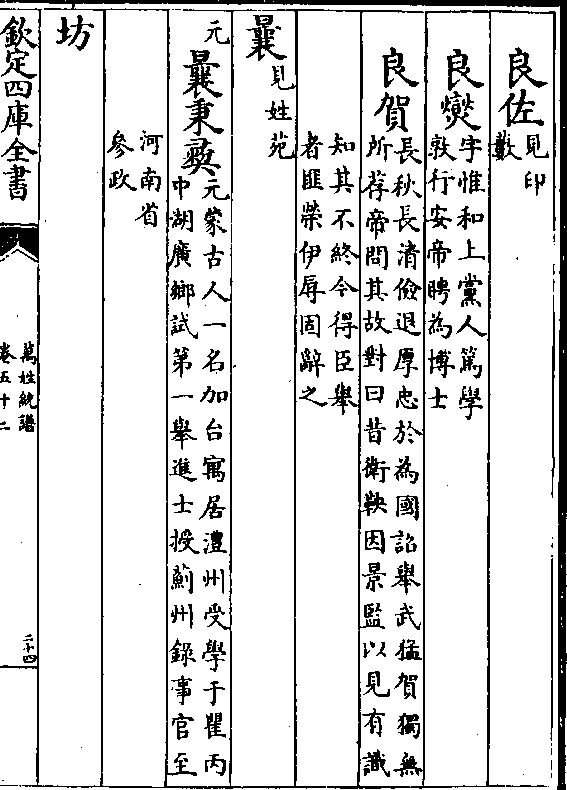 良佐 見印藪
良燮 字惟和上黨人篤學
敦行安帝聘為博士
良賀 長秋長清儉退厚忠於為國詔舉武猛賀獨無
所荐帝問其故對曰昔衛鞅因景監以見有識
知其不終今得臣舉
者匪榮伊辱固辭之
曩 見姓苑
元
曩秉彝 元蒙古人一名加台寓居澧州受學于瞿丙
中湖廣鄉試第一舉進士授薊州錄事官至
河南省
參政
坊
欽定四庫全書
萬姓統譜
卷五十二
二十四